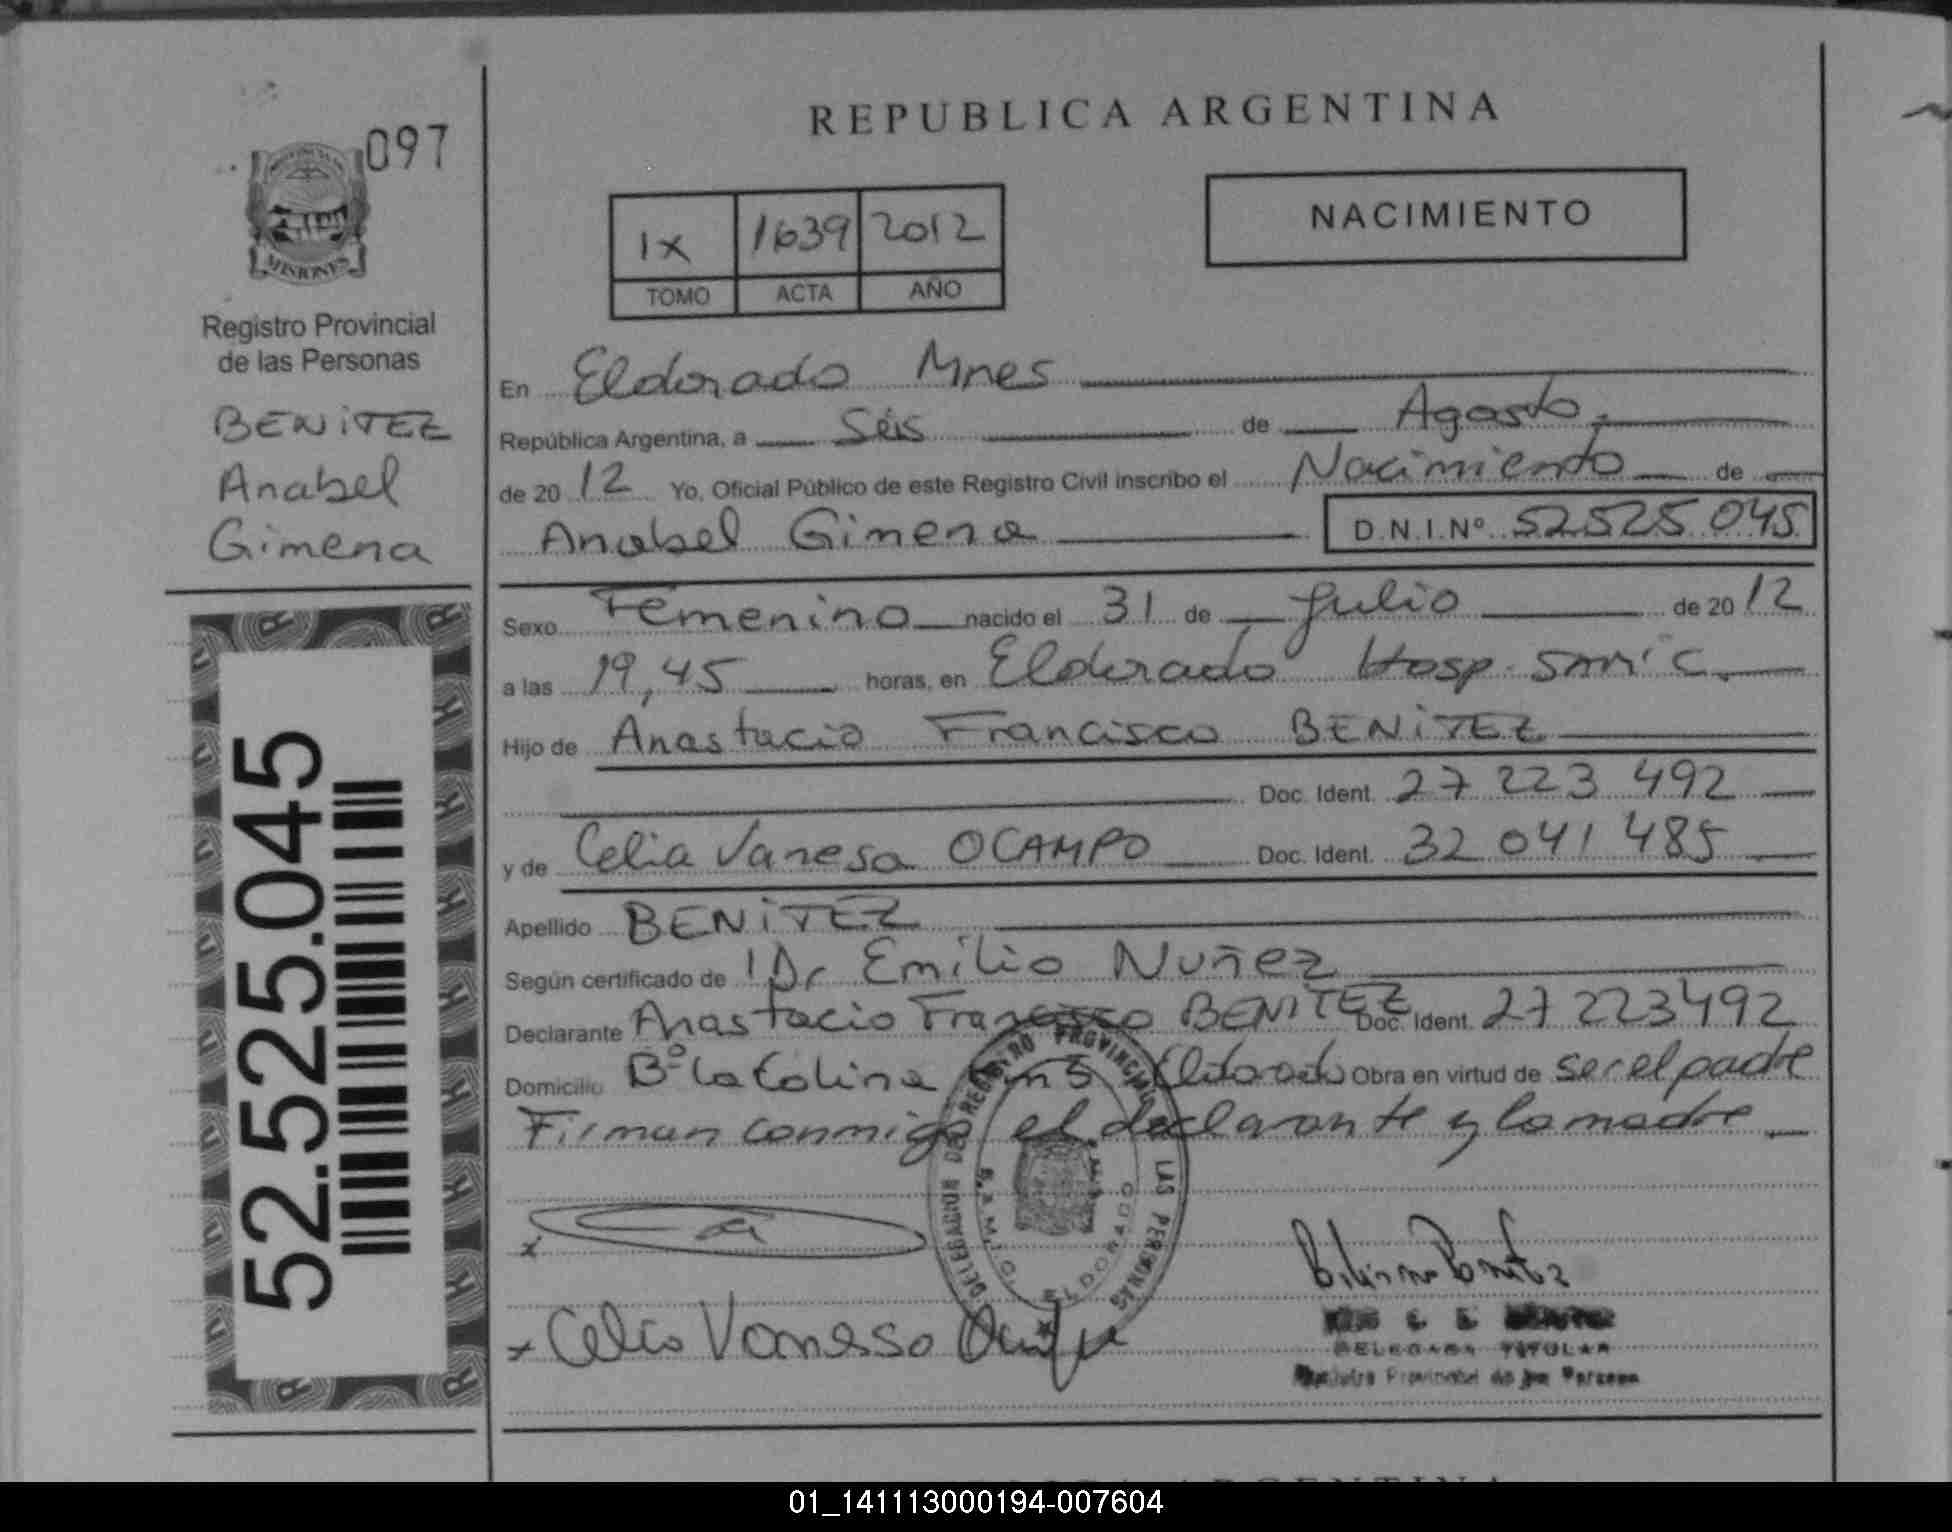 REPUBLICA ARGENTINA
097
MISIONES
Registro Provincial
de las Personas
BENITEZ
Anabel
Gimena
52.525.045
NACIMIENTO
IX 1639 2012
TOMO ACTA AÑO
En Eldorado Mnes
República Argentina, a Seis de Agosto
de 20 12 Yo, Oficial Público de este Registro Civil inscribo el Nacimiento de
Anabel Gimena D.N.I.Nº 52525 045
Sexo Femenino nacido el 31 de Julio de 20 12
a las 19,45 horas, en Eldorado Hosp. Samic.
Hijo de Anastacio Francisco BENITEZ
Doc. Ident. 27 223 492
y de Celia Vanesa OCAMPO Doc. Ident. 32 041 485
Apellido BENITEZ
Según certificado de Dr Emilio Nuñez
Declarante Anastacio Francisco BENITEZ Doc. Ident. 27 223492
Domicilio Bº La Colina Eldorado Obra en virtud de ser el padre
Firman conmigo el declarante y la madre
DELEGACION DEL REGISTRO PROVINCIAL DE LAS PERSONAS
ELDORADO
x
x Celia Vanessa
DELEGADA TITULAR
Registro Provincial de las Personas
ARGENTINA
01_141113000194-007604